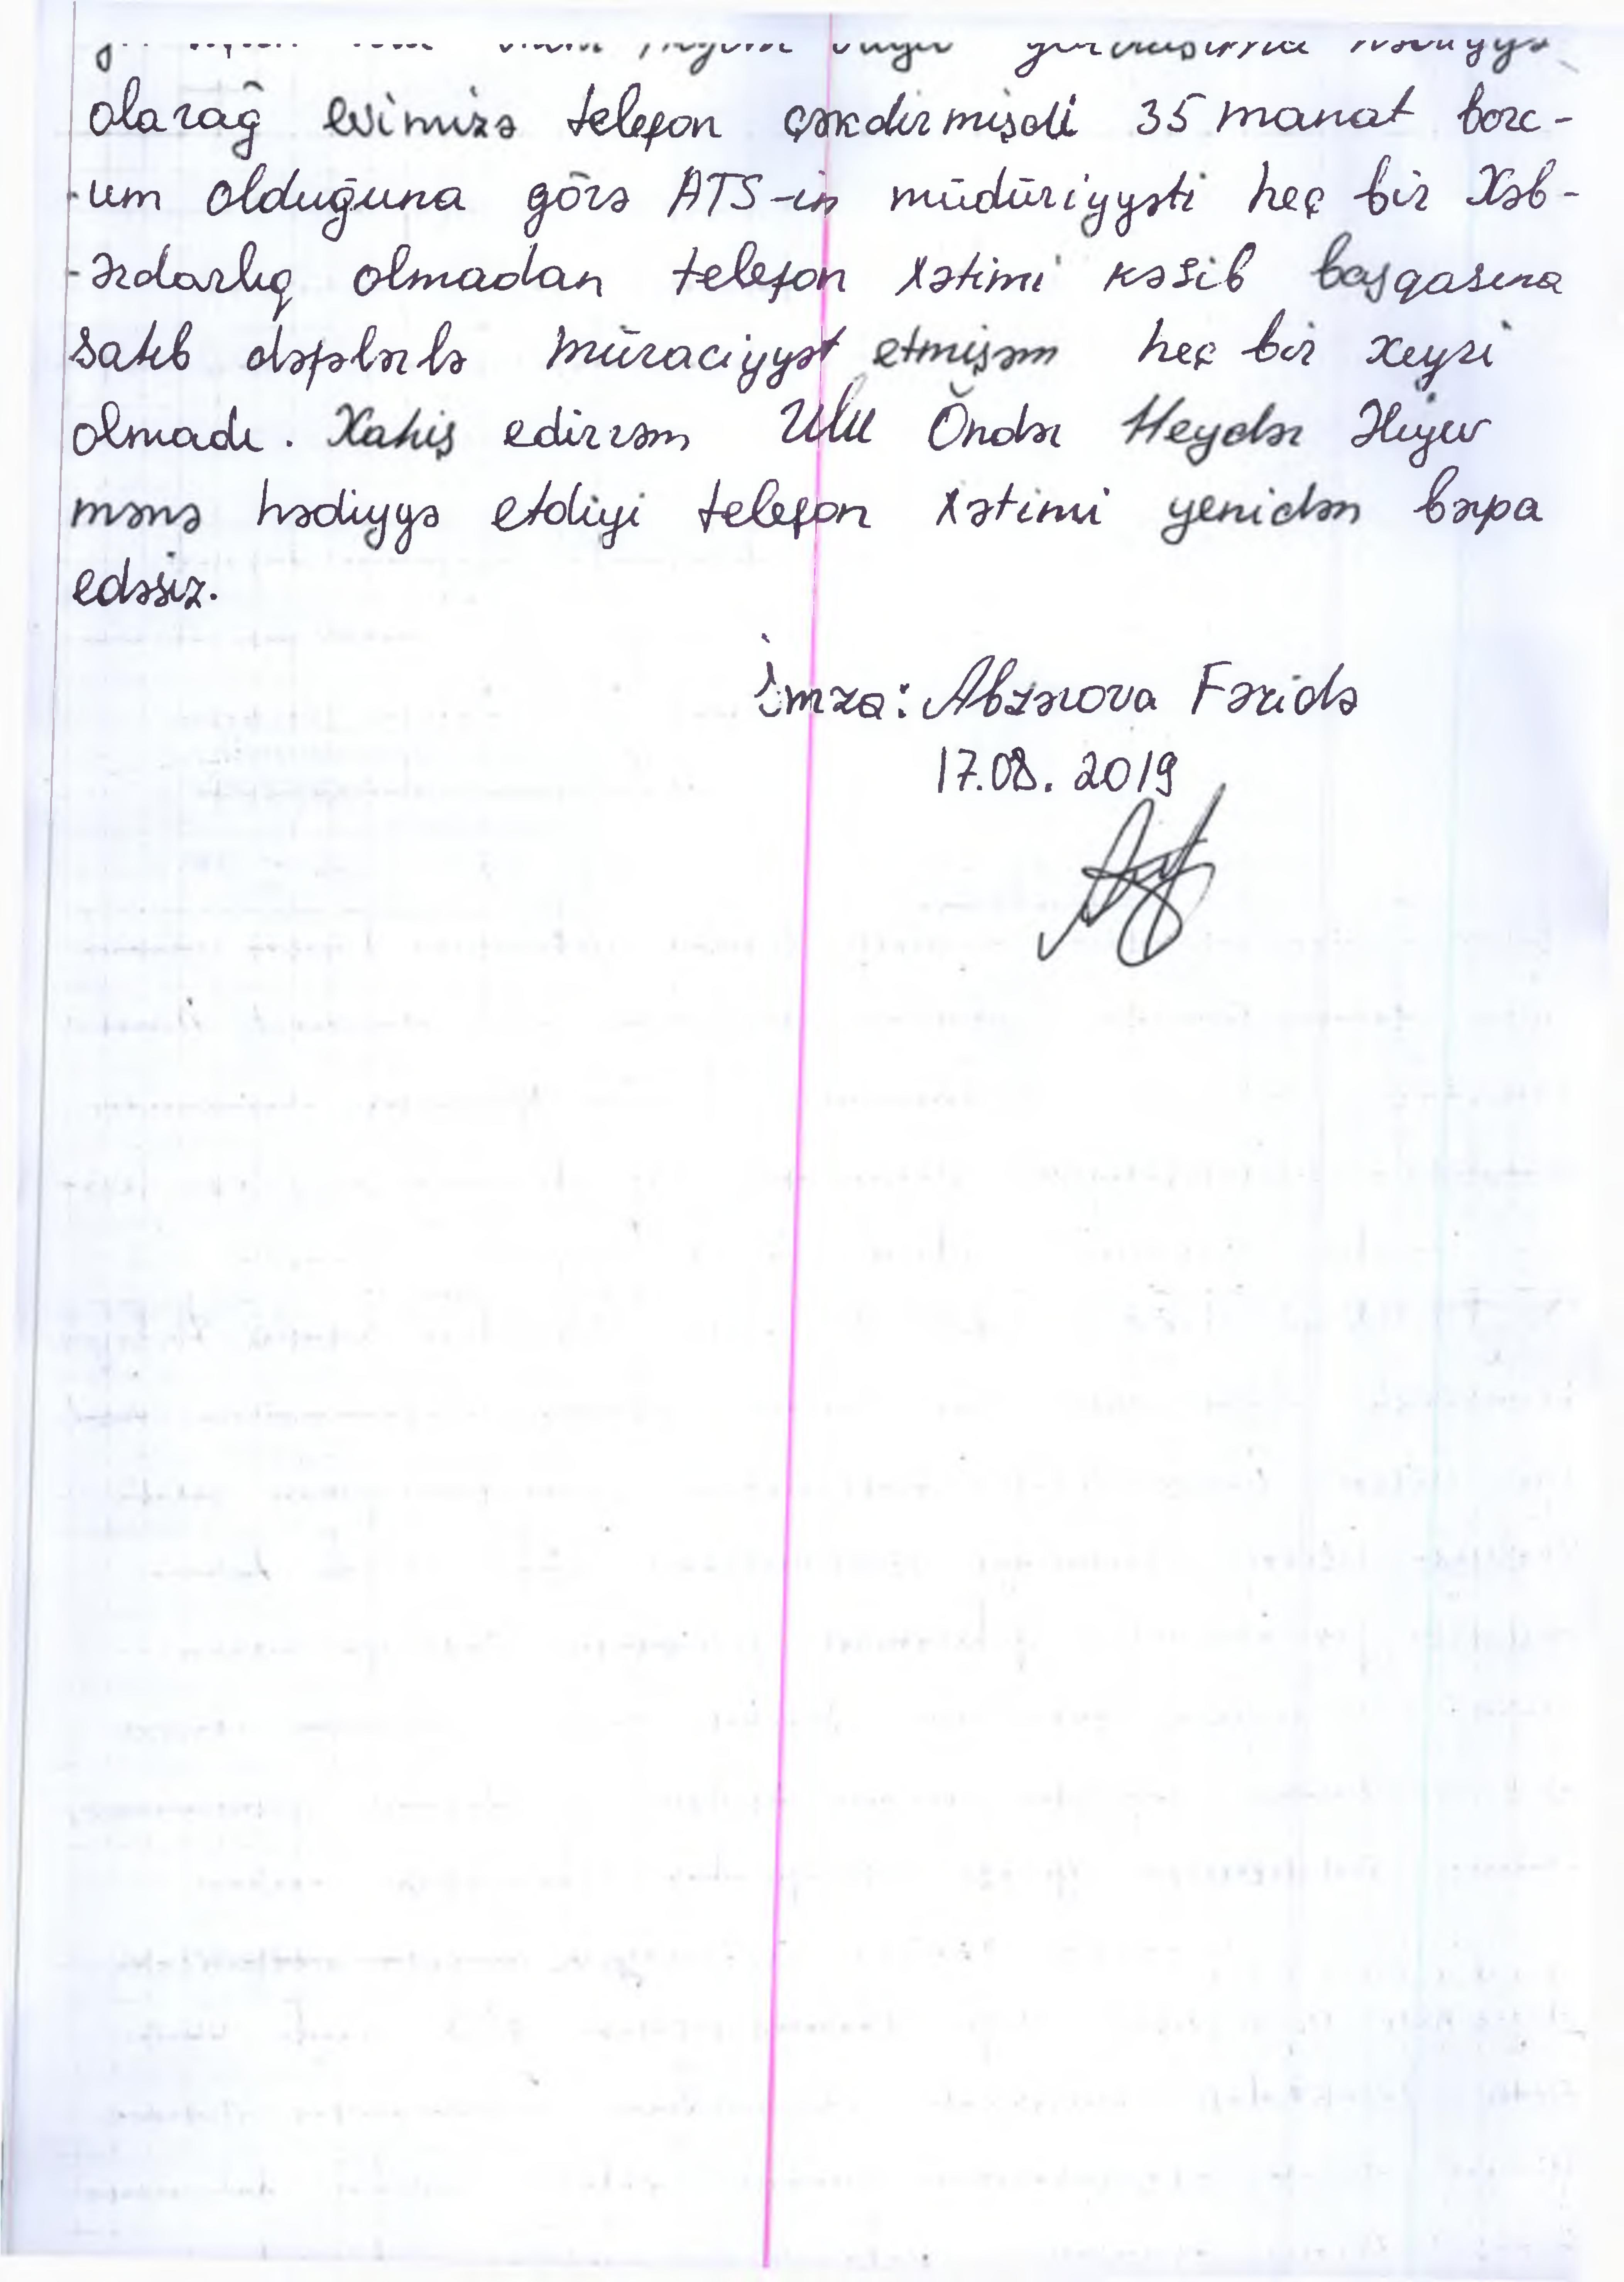 olarağ evimizə telefon çəkdirmişdi 35 manat borc-
-um olduğuna görə ATS-in müdüriyyəti heç bir Xəb-
-ərdarlıq olmadan telefon xətimi kəsib başqasına
satıb dəfələrlə müraciyyət etmişəm heç bir xeyri
olmadı. Xahiş edirrəm Ulu Öndər Heydər Əliyev
mənə hədiyyə etdiyi telefon xətimi yenidən bərpa
edəsiz.
İmza: Abzərova Fəridə
17.08.2019